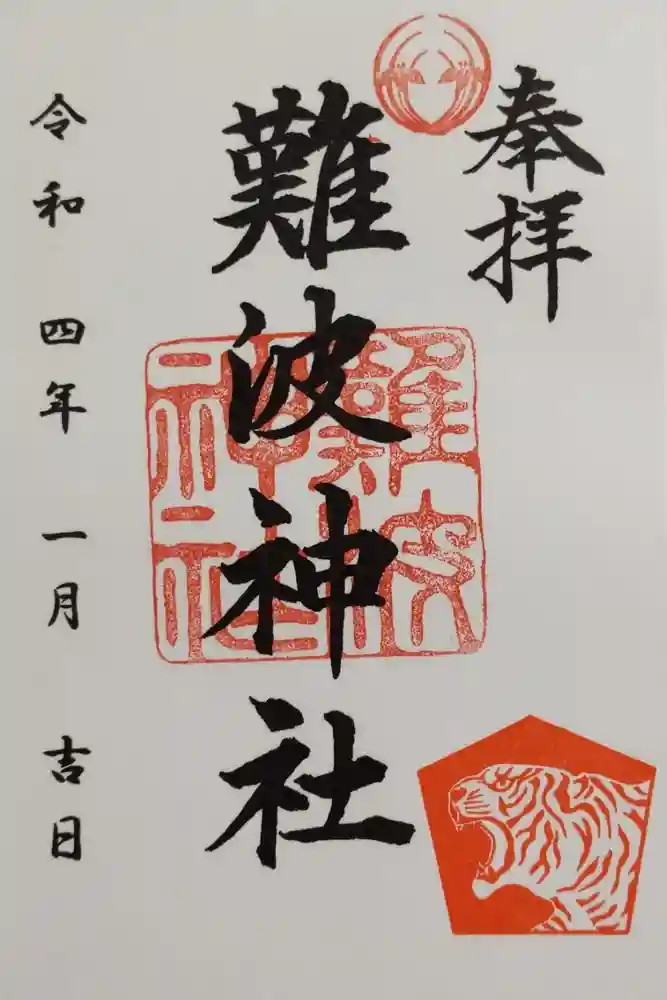 奉拝
難波神社
難波神社
令和四年一月吉日